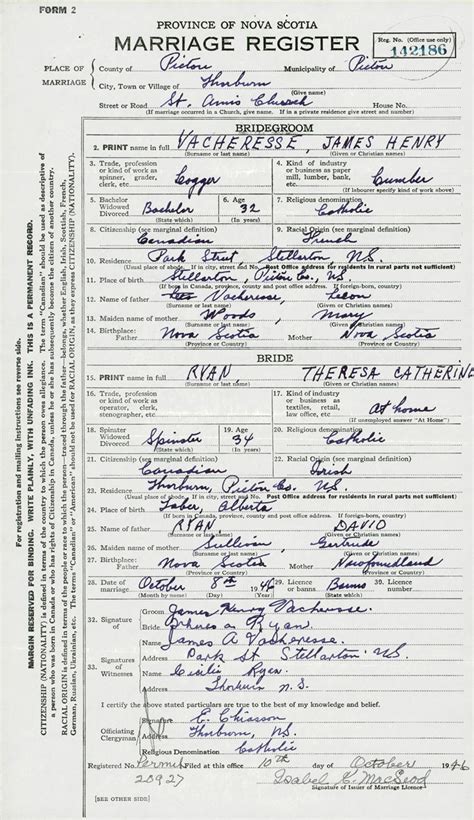 FORM 2
PROVINCE OF NOVA SCOTIA
MARRIAGE REGISTER
Reg. No. (Office use only)
142186
PLACE OF MARRIAGE
County of Pictou Municipality of Pictou
City, Town or Village of Thorburn
(Give name)
Street or Road St. Anns Church House No.
(If marriage occurred in a Church, give name. If in a private residence give street and number)
BRIDEGROOM
2. PRINT name in full VACHERESSE, JAMES HENRY
(Surname or last name) (Given or Christian names)
3. Trade, profession or kind of work as spinner, grader, clerk, etc. Logger
4. Kind of industry or business as paper mill, lumber, bank, etc. Lumber
(If labourer specify kind of work above)
5. Bachelor Widowed Divorced Bachelor 6. Age 32 7. Religious denomination Catholic
(State which) (In years)
8. Citizenship (see marginal definition) Canadian 9. Racial Origin (see marginal definition) French
10. Residence Park Street, Stellarton, N.S.
(Usual place of abode. If in city, street and No. Post Office address for residents in rural parts not sufficient)
11. Place of birth Stellarton, Pictou Co. N.S.
(If born in Canada, province, county and city, town or township. If foreign-born, country)
12. Name of father Vacheresse,
(Surname or last name) (Given or Christian names)
13. Maiden name of mother Woods, Mary
(Surname or last name) (Given or Christian names)
14. Birthplace: Father Nova Scotia Mother Nova Scotia
(Province or Country) (Province or Country)
BRIDE
15. PRINT name in full RYAN THERESA CATHERINE
(Surname or last name) (Given or Christian names)
16. Trade, profession or kind of work as operator, clerk, stenographer, etc.
17. Kind of industry or business as textiles, retail, law office, etc. At home
(If unemployed answer "At Home")
18. Spinster Widowed Divorced Spinster 19. Age 34 20. Religious denomination Catholic
(State which) (In years)
21. Citizenship (see marginal definition) Canadian 22. Racial Origin (see marginal definition) Irish
23. Residence Thorburn, Pictou Co. N.S.
(Usual place of abode. If in city, street and No. Post Office address for residents in rural parts not sufficient)
24. Place of birth Taber, Alberta
(If born in Canada, province, county and city, town or township. If foreign-born, country)
25. Name of father RYAN DAVID
(Surname or last name) (Given or Christian names)
26. Maiden name of mother Sullivan, Gertrude
(Surname or last name) (Given or Christian names)
27. Birthplace: Father Nova Scotia Mother Newfoundland
(Province or Country) (Province or Country)
28. Date of marriage October 8th 1946 29. Licence or Banns Banns 30. Licence number
(Month) (Day) (Year) (State which)
32. Signature of
Groom James Henry Vacheresse
Bride Theresa Ryan
33. Signatures of Witnesses
James A Vacheresse
Park St Stellarton NS
Cecilia Ryan
Thorburn N.S.
I certify the above stated particulars are true to the best of my knowledge and belief.
Officiating Clergyman
Signature E. Chiasson
Address Thorburn, NS.
Religious Denomination Catholic
Registered No. Permit 20927 at this office 10th day of October 1946
Isabel C. MacLeod
Signature of Issuer of Marriage Licence
[SEE OTHER SIDE]
For registration and mailing instructions see reverse side.
MARGIN RESERVED FOR BINDING. WRITE PLAINLY, WITH UNFADING INK. THIS IS A PERMANENT RECORD.
CITIZENSHIP (NATIONALITY) is defined in terms of the country to which the person owes allegiance. The term "Canadian" should be used as descriptive of
a person who was born in Canada or who has rights of Citizenship in Canada, unless he or she has subsequently become the citizen of another country.
RACIAL ORIGIN is defined in terms of the people or race to which the person—traced through the father—belongs, whether English, Irish, Scottish, French,
German, Russian, Ukrainian, etc. The terms "Canadian" or "American" should not be used for RACIAL ORIGIN, as they express CITIZENSHIP (NATIONALITY).